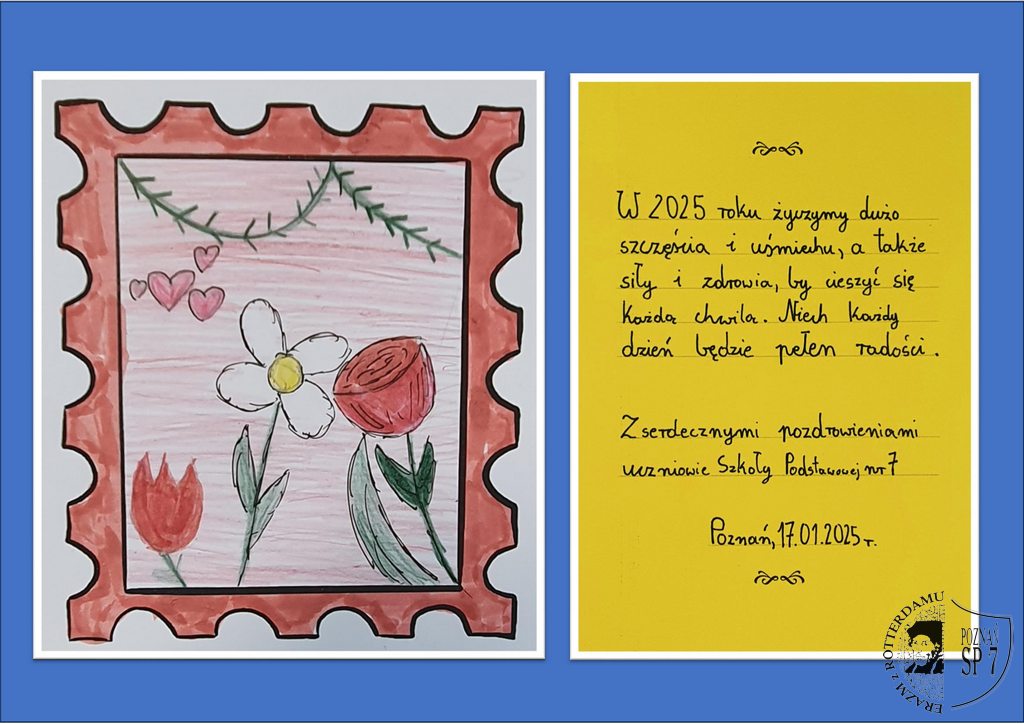 W 2025 roku życzymy dużo
szczęścia i uśmiechu, a także
siły i zdrowia, by cieszyć się
każdą chwilą. Niech każdy
dzień będzie pełen radości.
Z serdecznymi pozdrowieniami
uczniowie Szkoły Podstawowej nr 7
Poznań, 17.01.2025 r.
ERAZM z ROTTERDAMU
POZNAŃ
SP 7